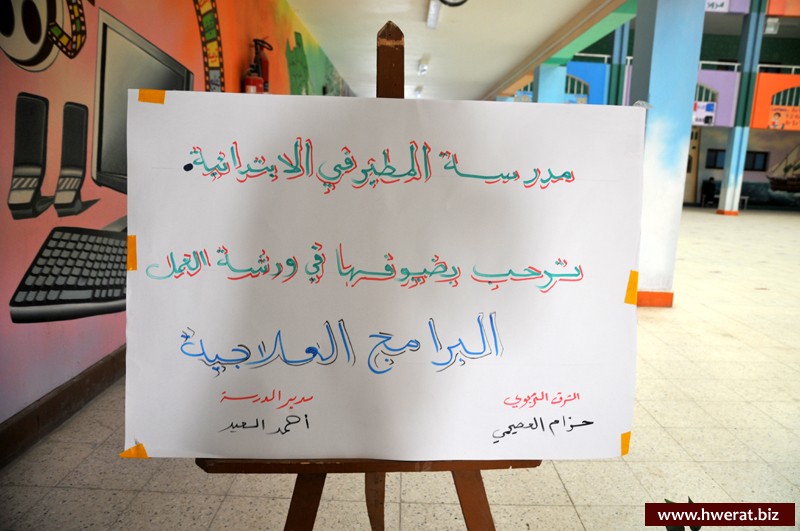 مدرسة المطيرفي الابتدائية.
ترحب بضيوفها في ورشة العمل
البرامج العلاجية
المشرف التربوي
حزام العصيمي
مدير المدرسة
أحمد السعيد
www.hwerat.biz